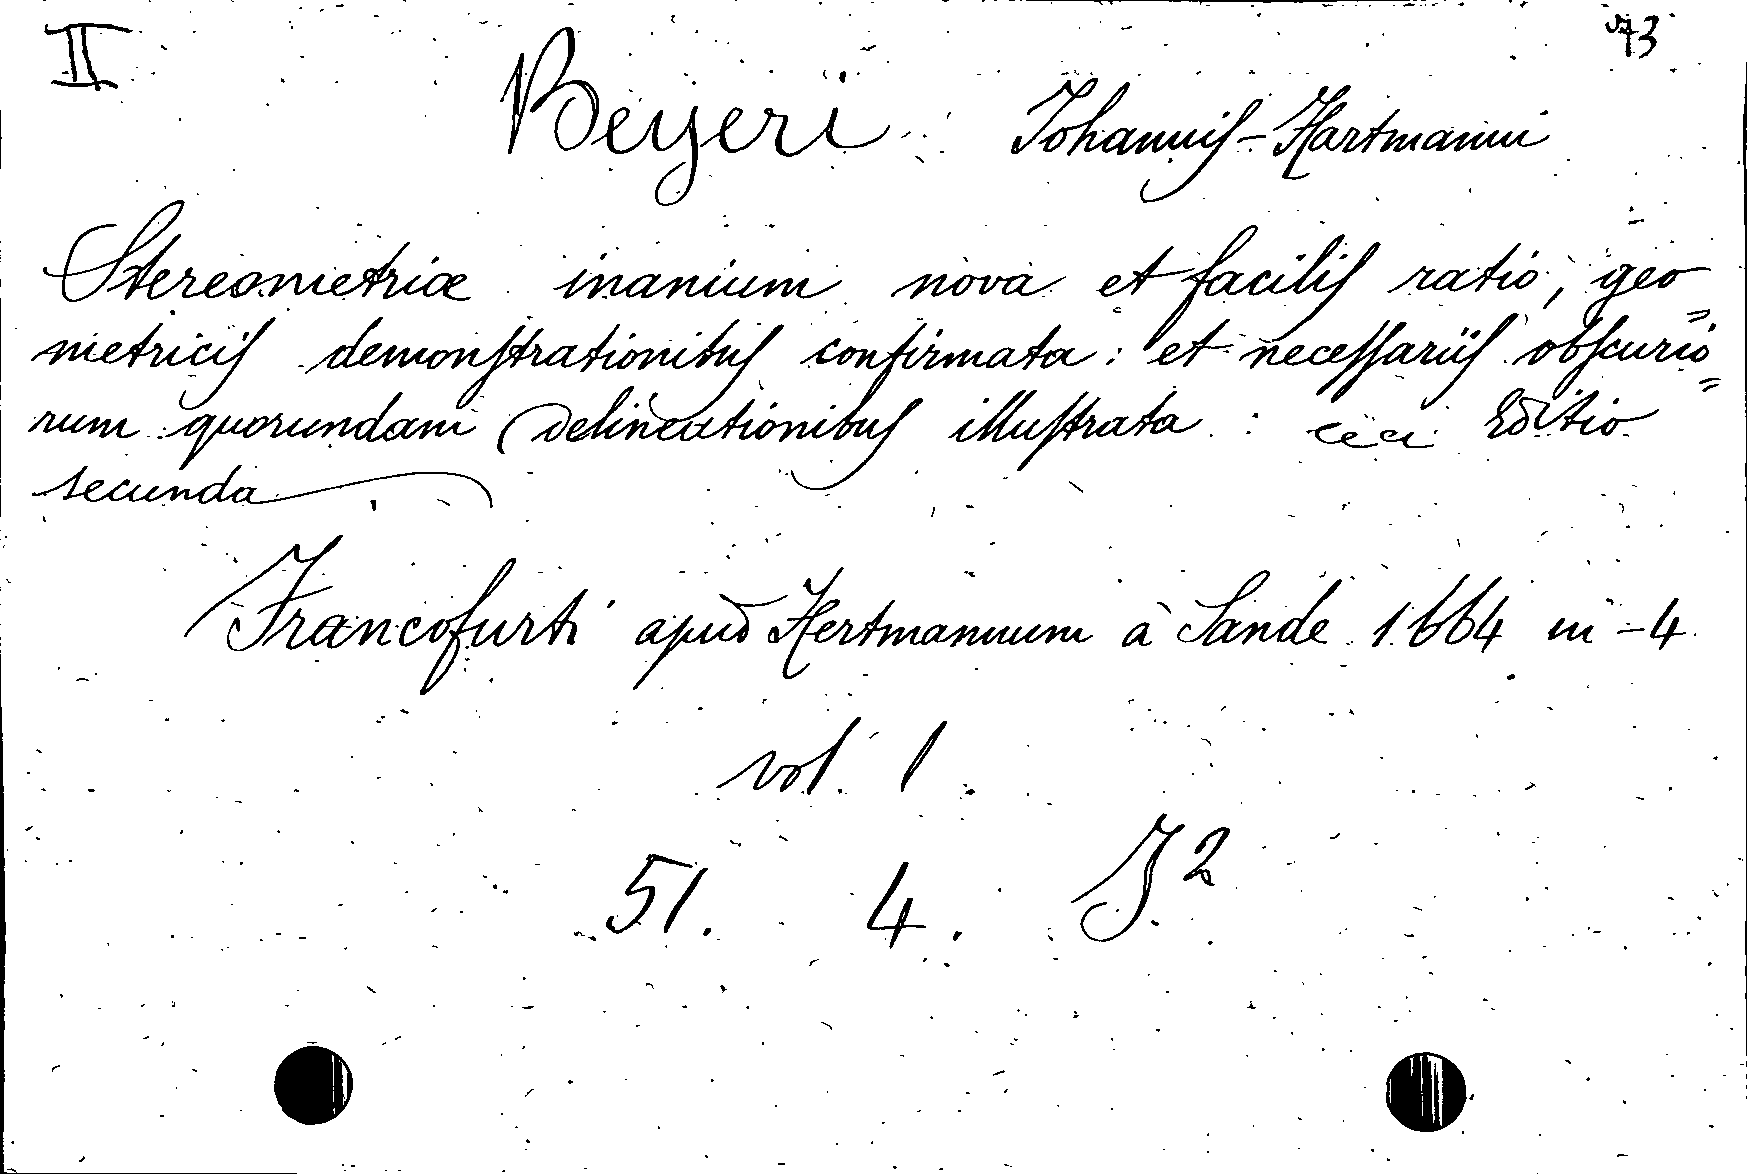 II
73
Beyeri Johannis-Hartmanni
Stereometriæ inanium nova et facilis ratio, geo=
metricis demonstrationibus confirmata: et necessariis obscurio=
rum quorundam delineationibus illustrata: Editio
secunda
Francofurti apud Hertmannum à Sande 1664 in-4
vol. 1.
51. 4. J.2